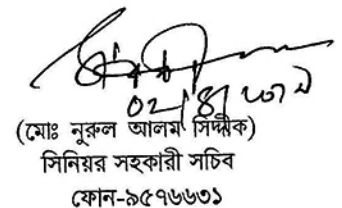 ০২/৪/২০১৭
(মোঃ নুরুল আলম সিদ্দীক)
সিনিয়র সহকারী সচিব
ফোন-৯৫৭৬৬৩১